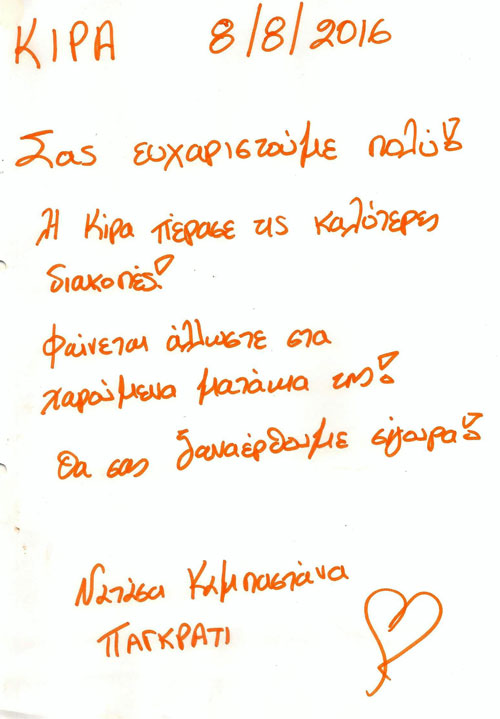 ΚΙΡΑ 8/8/2016
Σας ευχαριστούμε πολύ!
Η Κίρα πέρασε τις καλύτερες
διακοπές!
Φαίνεται άλλωστε στα
χαρούμενα ματάκια της!
Θα σας ξαναέρθουμε σίγουρα!
Νατάσα Καμπαστάνα
ΠΑΓΚΡΑΤΙ